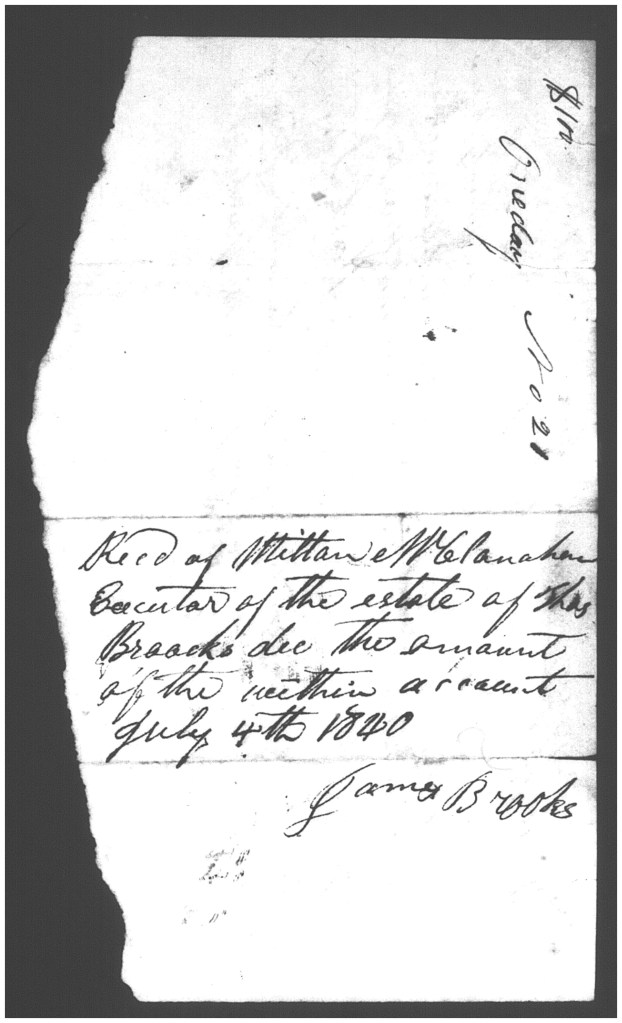 $1.00
One day
No 21
Recd of Milton McClanahan
Executor of the estate of Thos
Broocks dec the amount
of the within account
July 4th 1840
James Brooks